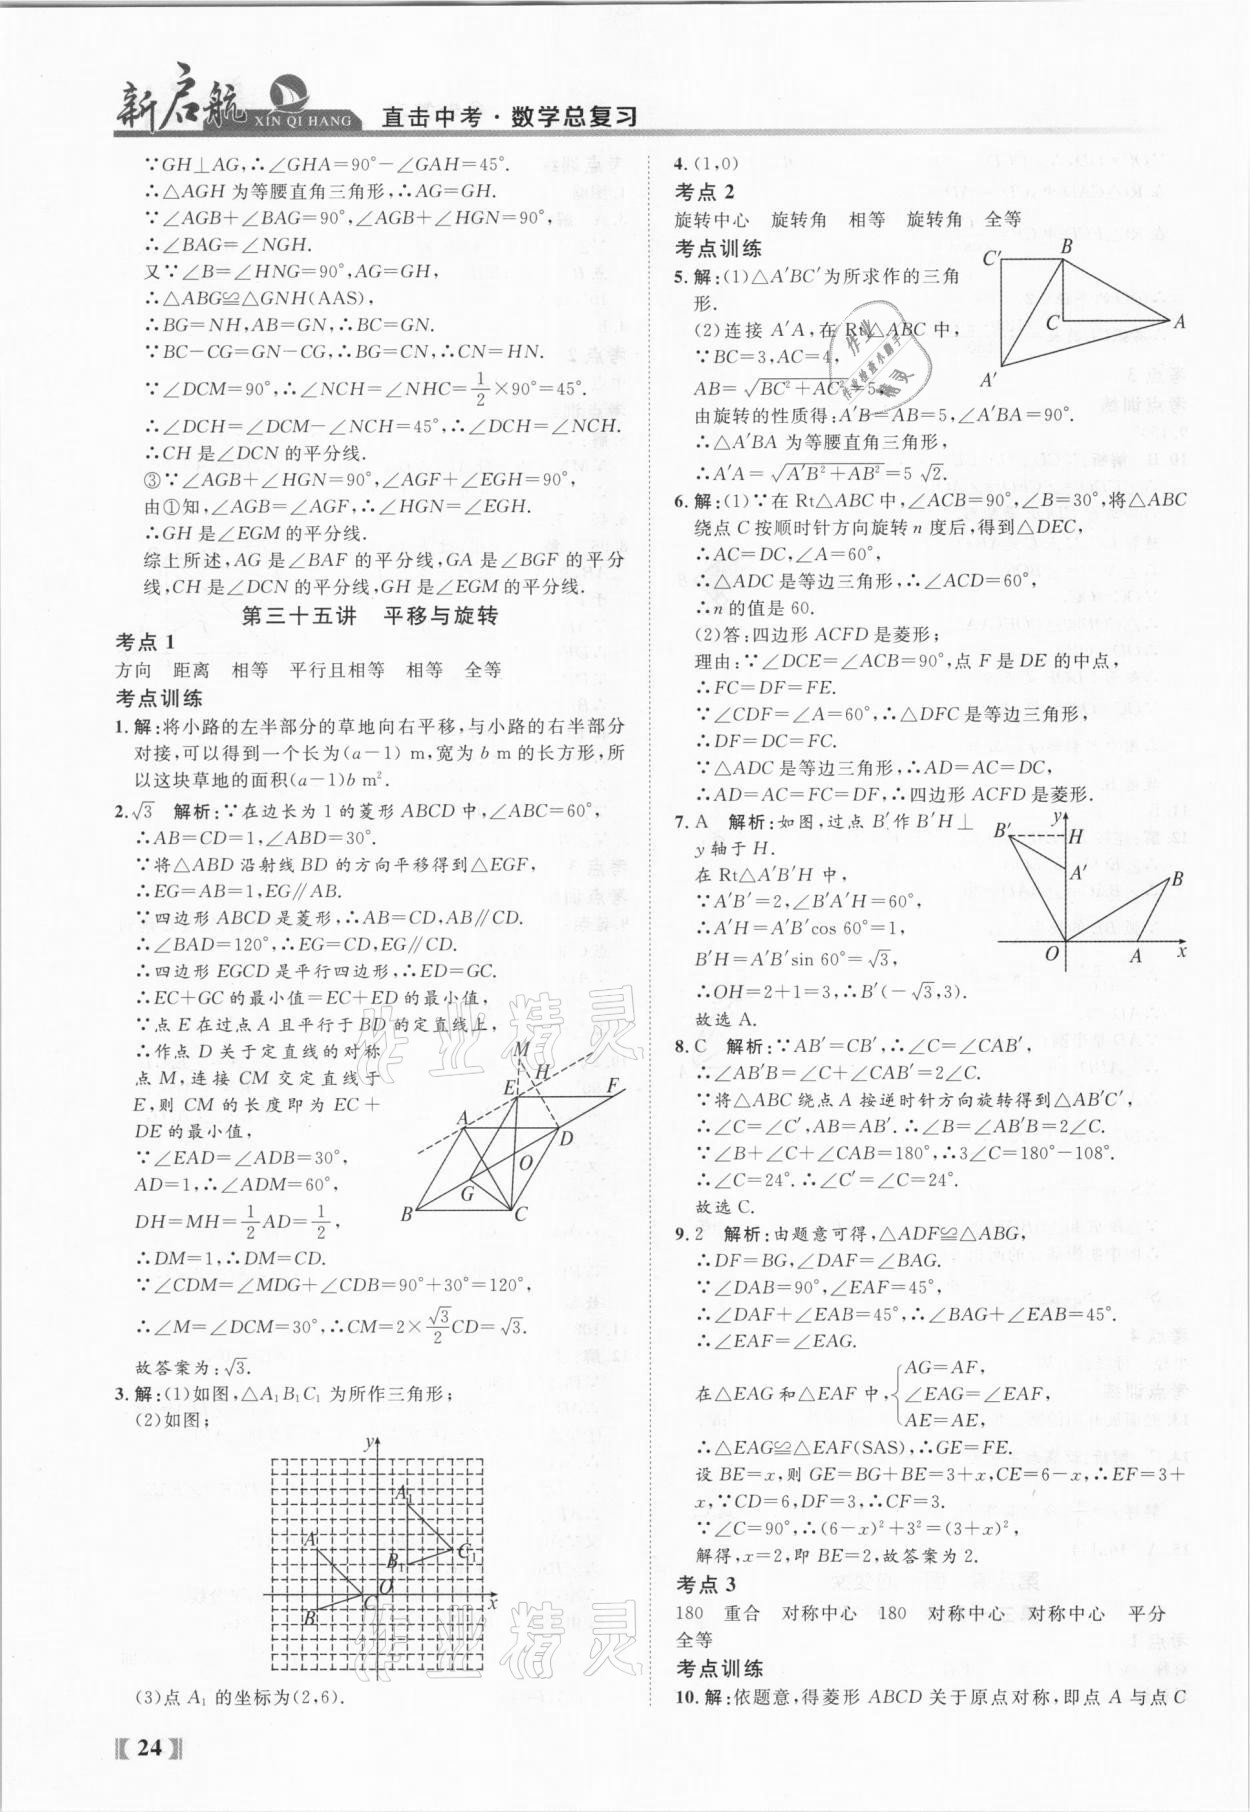 新启航
XIN QI HANG
直击中考·数学总复习
∵GH⊥AG,∴∠GHA=90°-∠GAH=45°.
∴△AGH 为等腰直角三角形,∴AG=GH.
∵∠AGB+∠BAG=90°,∠AGB+∠HGN=90°,
∴∠BAG=∠NGH.
又∵∠B=∠HNG=90°,AG=GH,
∴△ABG≌△GNH(AAS),
∴BG=NH,AB=GN,∴BC=GN.
∵BC-CG=GN-CG,∴BG=CN,∴CN=HN.
∵∠DCM=90°,∴∠NCH=∠NHC=1/2×90°=45°.
∴∠DCH=∠DCM-∠NCH=45°,∴∠DCH=∠NCH.
∴CH 是∠DCN 的平分线.
③∵∠AGB+∠HGN=90°,∠AGF+∠EGH=90°,
由①知,∠AGB=∠AGF,∴∠HGN=∠EGH.
∴GH 是∠EGM 的平分线.
综上所述,AG 是∠BAF 的平分线,GA 是∠BGF 的平分
线,CH 是∠DCN 的平分线,GH 是∠EGM 的平分线.
第三十五讲 平移与旋转
考点 1
方向 距离 相等 平行且相等 相等 全等
考点训练
1.解:将小路的左半部分的草地向右平移,与小路的右半部分
对接,可以得到一个长为(a-1) m,宽为 b m 的长方形,所
以这块草地的面积(a-1)b m².
2.√3 解析:∵在边长为 1 的菱形 ABCD 中,∠ABC=60°,
∴AB=CD=1,∠ABD=30°.
∵将△ABD 沿射线 BD 的方向平移得到△EGF,
∴EG=AB=1,EG∥AB.
∵四边形 ABCD 是菱形,∴AB=CD,AB∥CD.
∴∠BAD=120°,∴EG=CD,EG∥CD.
∴四边形 EGCD 是平行四边形,∴ED=GC.
∴EC+GC 的最小值=EC+ED 的最小值,
∵点 E 在过点 A 且平行于 BD 的定直线上,
∴作点 D 关于定直线的对称
点 M,连接 CM 交定直线于
E,则 CM 的长度即为 EC+
DE 的最小值,
∵∠EAD=∠ADB=30°,
AD=1,∴∠ADM=60°,
DH=MH=1/2AD=1/2,
∴DM=1,∴DM=CD.
∵∠CDM=∠MDG+∠CDB=90°+30°=120°,
∴∠M=∠DCM=30°,∴CM=2×√3/2CD=√3.
故答案为:√3.
M
H
E
F
A
D
O
G
B
C
3.解:(1)如图,△A₁B₁C₁ 为所作三角形;
(2)如图;
y
A₁
A
B₁
C₁
O
C
B
x
(3)点 A₁ 的坐标为(2,6).
24
4.(1,0)
考点 2
旋转中心 旋转角 相等 旋转角 全等
考点训练
5.解:(1)△A′BC′为所求作的三角
形.
(2)连接 A′A,在 Rt△ABC 中,
∵BC=3,AC=4,
AB=√(BC²+AC²)=5,
由旋转的性质得:A′B=AB=5,∠A′BA=90°.
∴△A′BA 为等腰直角三角形,
∴A′A=√(A′B²+AB²)=5√2.
C′
B
C
A
A′
6.解:(1)∵在 Rt△ABC 中,∠ACB=90°,∠B=30°,将△ABC
绕点 C 按顺时针方向旋转 n 度后,得到△DEC,
∴AC=DC,∠A=60°,
∴△ADC 是等边三角形,∴∠ACD=60°,
∴n 的值是 60.
(2)答:四边形 ACFD 是菱形;
理由:∵∠DCE=∠ACB=90°,点 F 是 DE 的中点,
∴FC=DF=FE.
∵∠CDF=∠A=60°,∴△DFC 是等边三角形,
∴DF=DC=FC.
∵△ADC 是等边三角形,∴AD=AC=DC,
∴AD=AC=FC=DF,∴四边形 ACFD 是菱形.
7.A 解析:如图,过点 B′作 B′H⊥
y 轴于 H.
在 Rt△A′B′H 中,
∵A′B′=2,∠B′A′H=60°,
∴A′H=A′B′cos 60°=1,
B′H=A′B′sin 60°=√3,
∴OH=2+1=3,∴B′(-√3,3).
故选 A.
y
B′
H
A′
B
O
A
x
8.C 解析:∵AB′=CB′,∴∠C=∠CAB′,
∴∠AB′B=∠C+∠CAB′=2∠C.
∵将△ABC 绕点 A 按逆时针方向旋转得到△AB′C′,
∴∠C=∠C′,AB=AB′.∴∠B=∠AB′B=2∠C.
∵∠B+∠C+∠CAB=180°,∴3∠C=180°-108°.
∴∠C=24°.∴∠C′=∠C=24°.
故选 C.
9.2 解析:由题意可得,△ADF≌△ABG,
∴DF=BG,∠DAF=∠BAG.
∵∠DAB=90°,∠EAF=45°,
∴∠DAF+∠EAB=45°,∴∠BAG+∠EAB=45°.
∴∠EAF=∠EAG.
在△EAG 和△EAF 中,{AG=AF,
∠EAG=∠EAF,
AE=AE,
∴△EAG≌△EAF(SAS),∴GE=FE.
设 BE=x,则 GE=BG+BE=3+x,CE=6-x,∴EF=3+
x,∵CD=6,DF=3,∴CF=3.
∵∠C=90°,∴(6-x)²+3²=(3+x)²,
解得,x=2,即 BE=2,故答案为 2.
考点 3
180 重合 对称中心 180 对称中心 对称中心 平分
全等
考点训练
10.解:依题意,得菱形 ABCD 关于原点对称,即点 A 与点 C
作业精灵
作业精灵